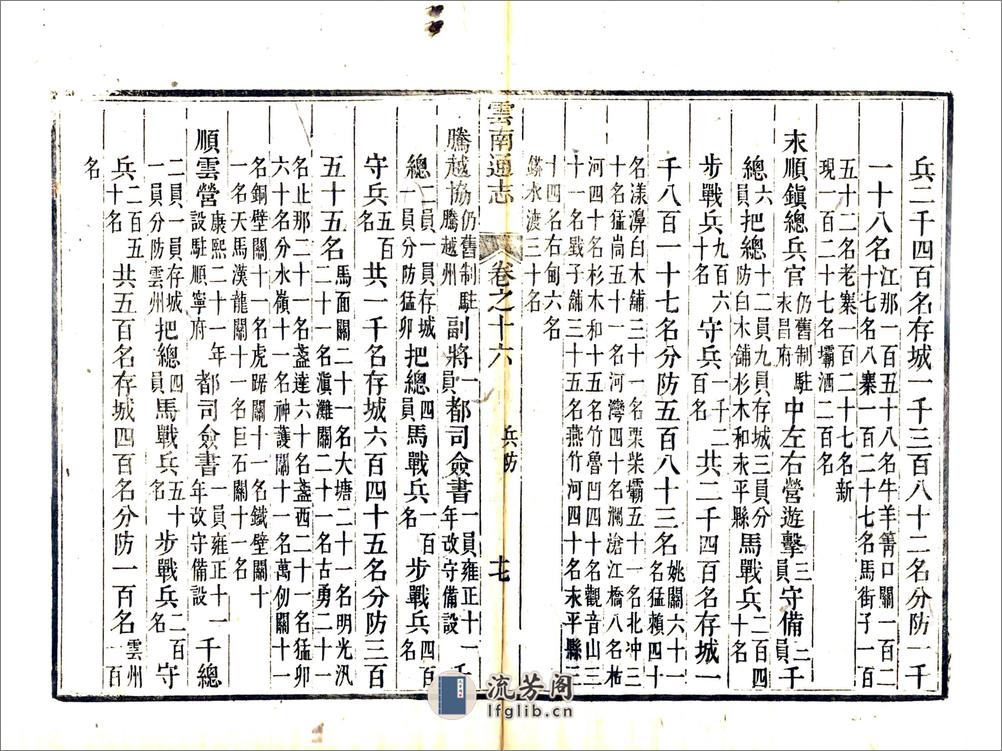 兵二千四百名存城一千三百八十二名分防一千
一十八名江那一百五十八名牛羊箐口關一百二十七名八寨一百二十七名馬街子一百
五十二名老寨一百二十七名新現一百二十七名壩洒二百名
永順鎮總兵官仍舊制駐永昌府中左右營遊擊三員守備二員千
總六員把總十二員九員存城三員分防白木舖杉木和永平縣馬戰兵二百四十名
步戰兵九百六十名守兵一千二百名共二千四百名存城一
千八百一十七名分防五百八十三名姚關六十一名猛賴四十
名漾濞白木舖三十一名栗柴壩五十一名北冲三十名猛峝五十一名河灣四十名瀾滄江橋八名枯
河四十名杉木和十五名竹魯凹四十名觀音山三十一名戥子舖三十五名燕竹河四十名永平縣二
十四名右甸六名水渡三十名
雲南通志 卷之十六 兵防 十七
騰越協仍舊制駐騰越州副將一員都司僉書一員雍正十一年改守備設千
總二員一員存城一員分防猛卯把總四員馬戰兵一百名步戰兵四百名
守兵五百名共一千名存城六百四十五名分防三百
五十五名馬面關二十一名大塘二十一名明光汛二十一名滇灘關二十一名古勇二十一
名止那二十一名盞達六十名盞西二十一名猛卯六十名分水嶺十一名神護關十一名萬仞關十一
名銅壁關十一名虎踞關十一名鐵壁關十一名天馬漢龍關十一名巨石關十一名
順雲營康熙二十一年設駐順寧府都司僉書一員雍正十一年改守備設千總
二員一員存城一員分防雲州把總四員馬戰兵五十名步戰兵二百名守
兵二百五十名共五百名存城四百名分防一百名雲州一百
名
流芳阁
lfglib.cn